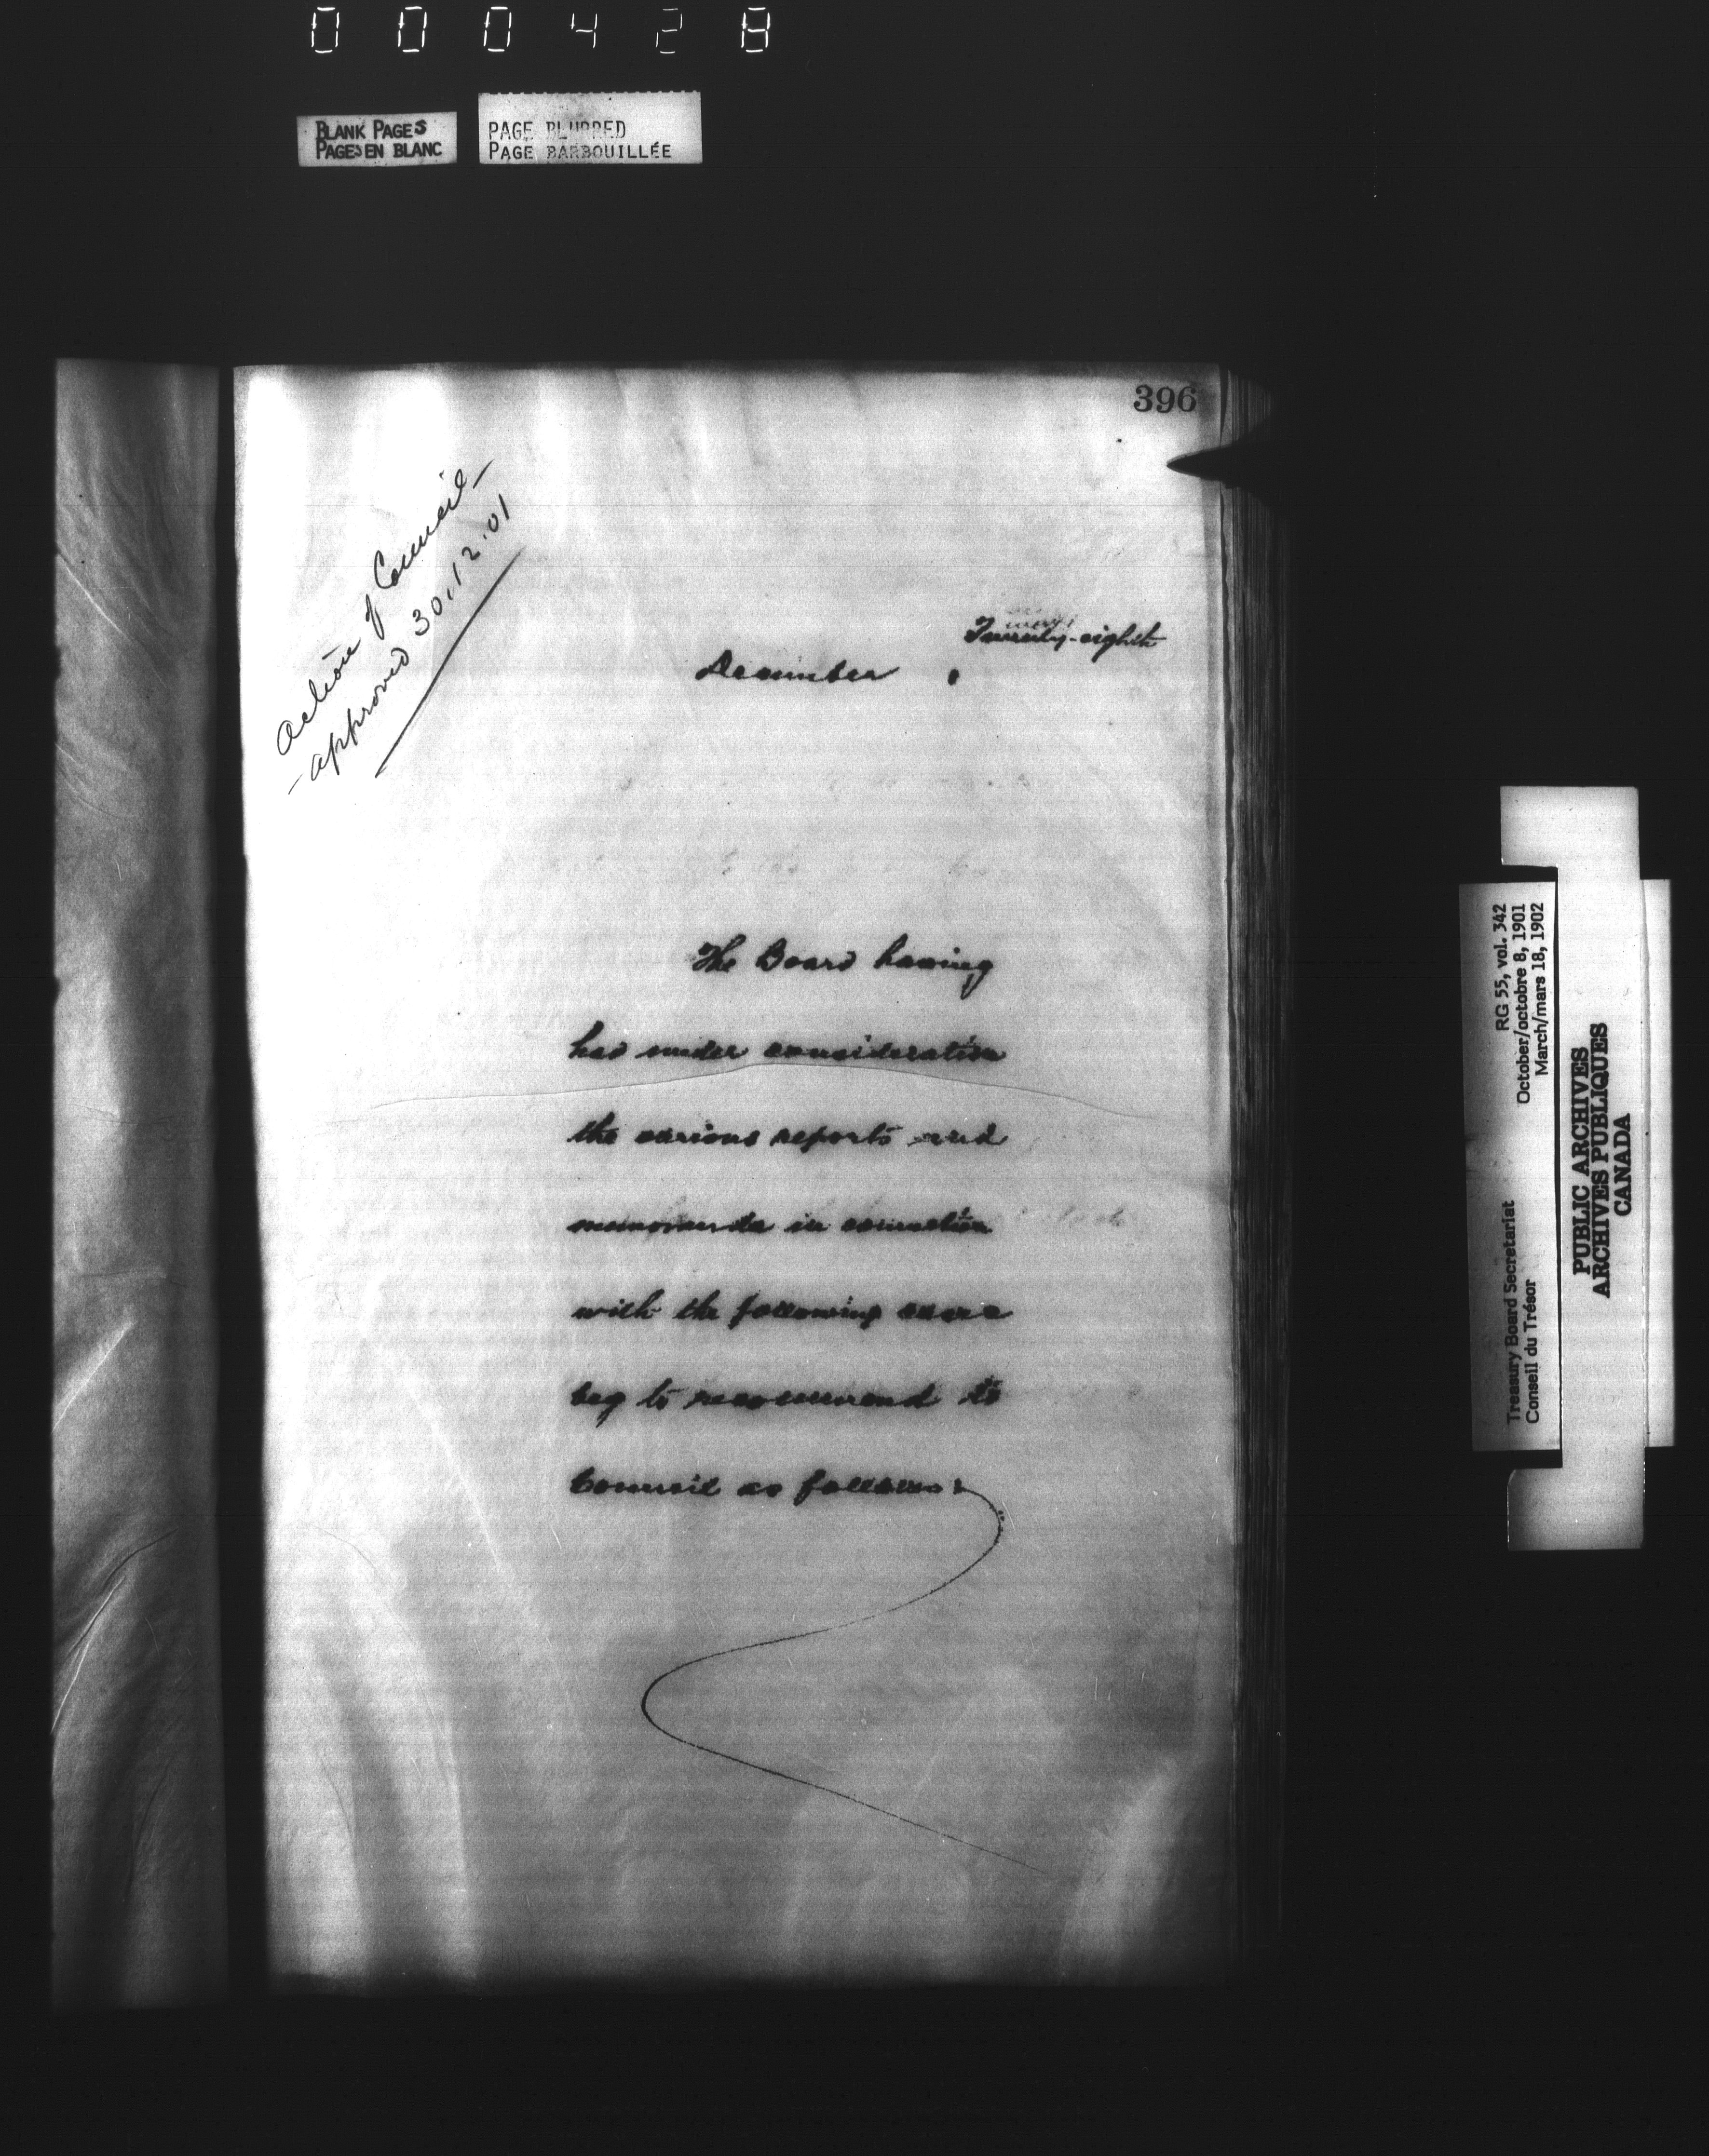 000428
BLANK PAGES
PAGES EN BLANC
PAGE BLURRED
PAGE BARBOUILLÉE
396
Action of Council
approved 30.12.01
Twenty-eighth
December
The Board having
had under consideration
the various reports and
memoranda in connection
with the following cases
beg to recommend to
Council as follows:
RG 55, vol. 342
October/octobre 8, 1901
March/mars 18, 1902
Treasury Board Secretariat
Conseil du Trésor
PUBLIC ARCHIVES
ARCHIVES PUBLIQUES
CANADA